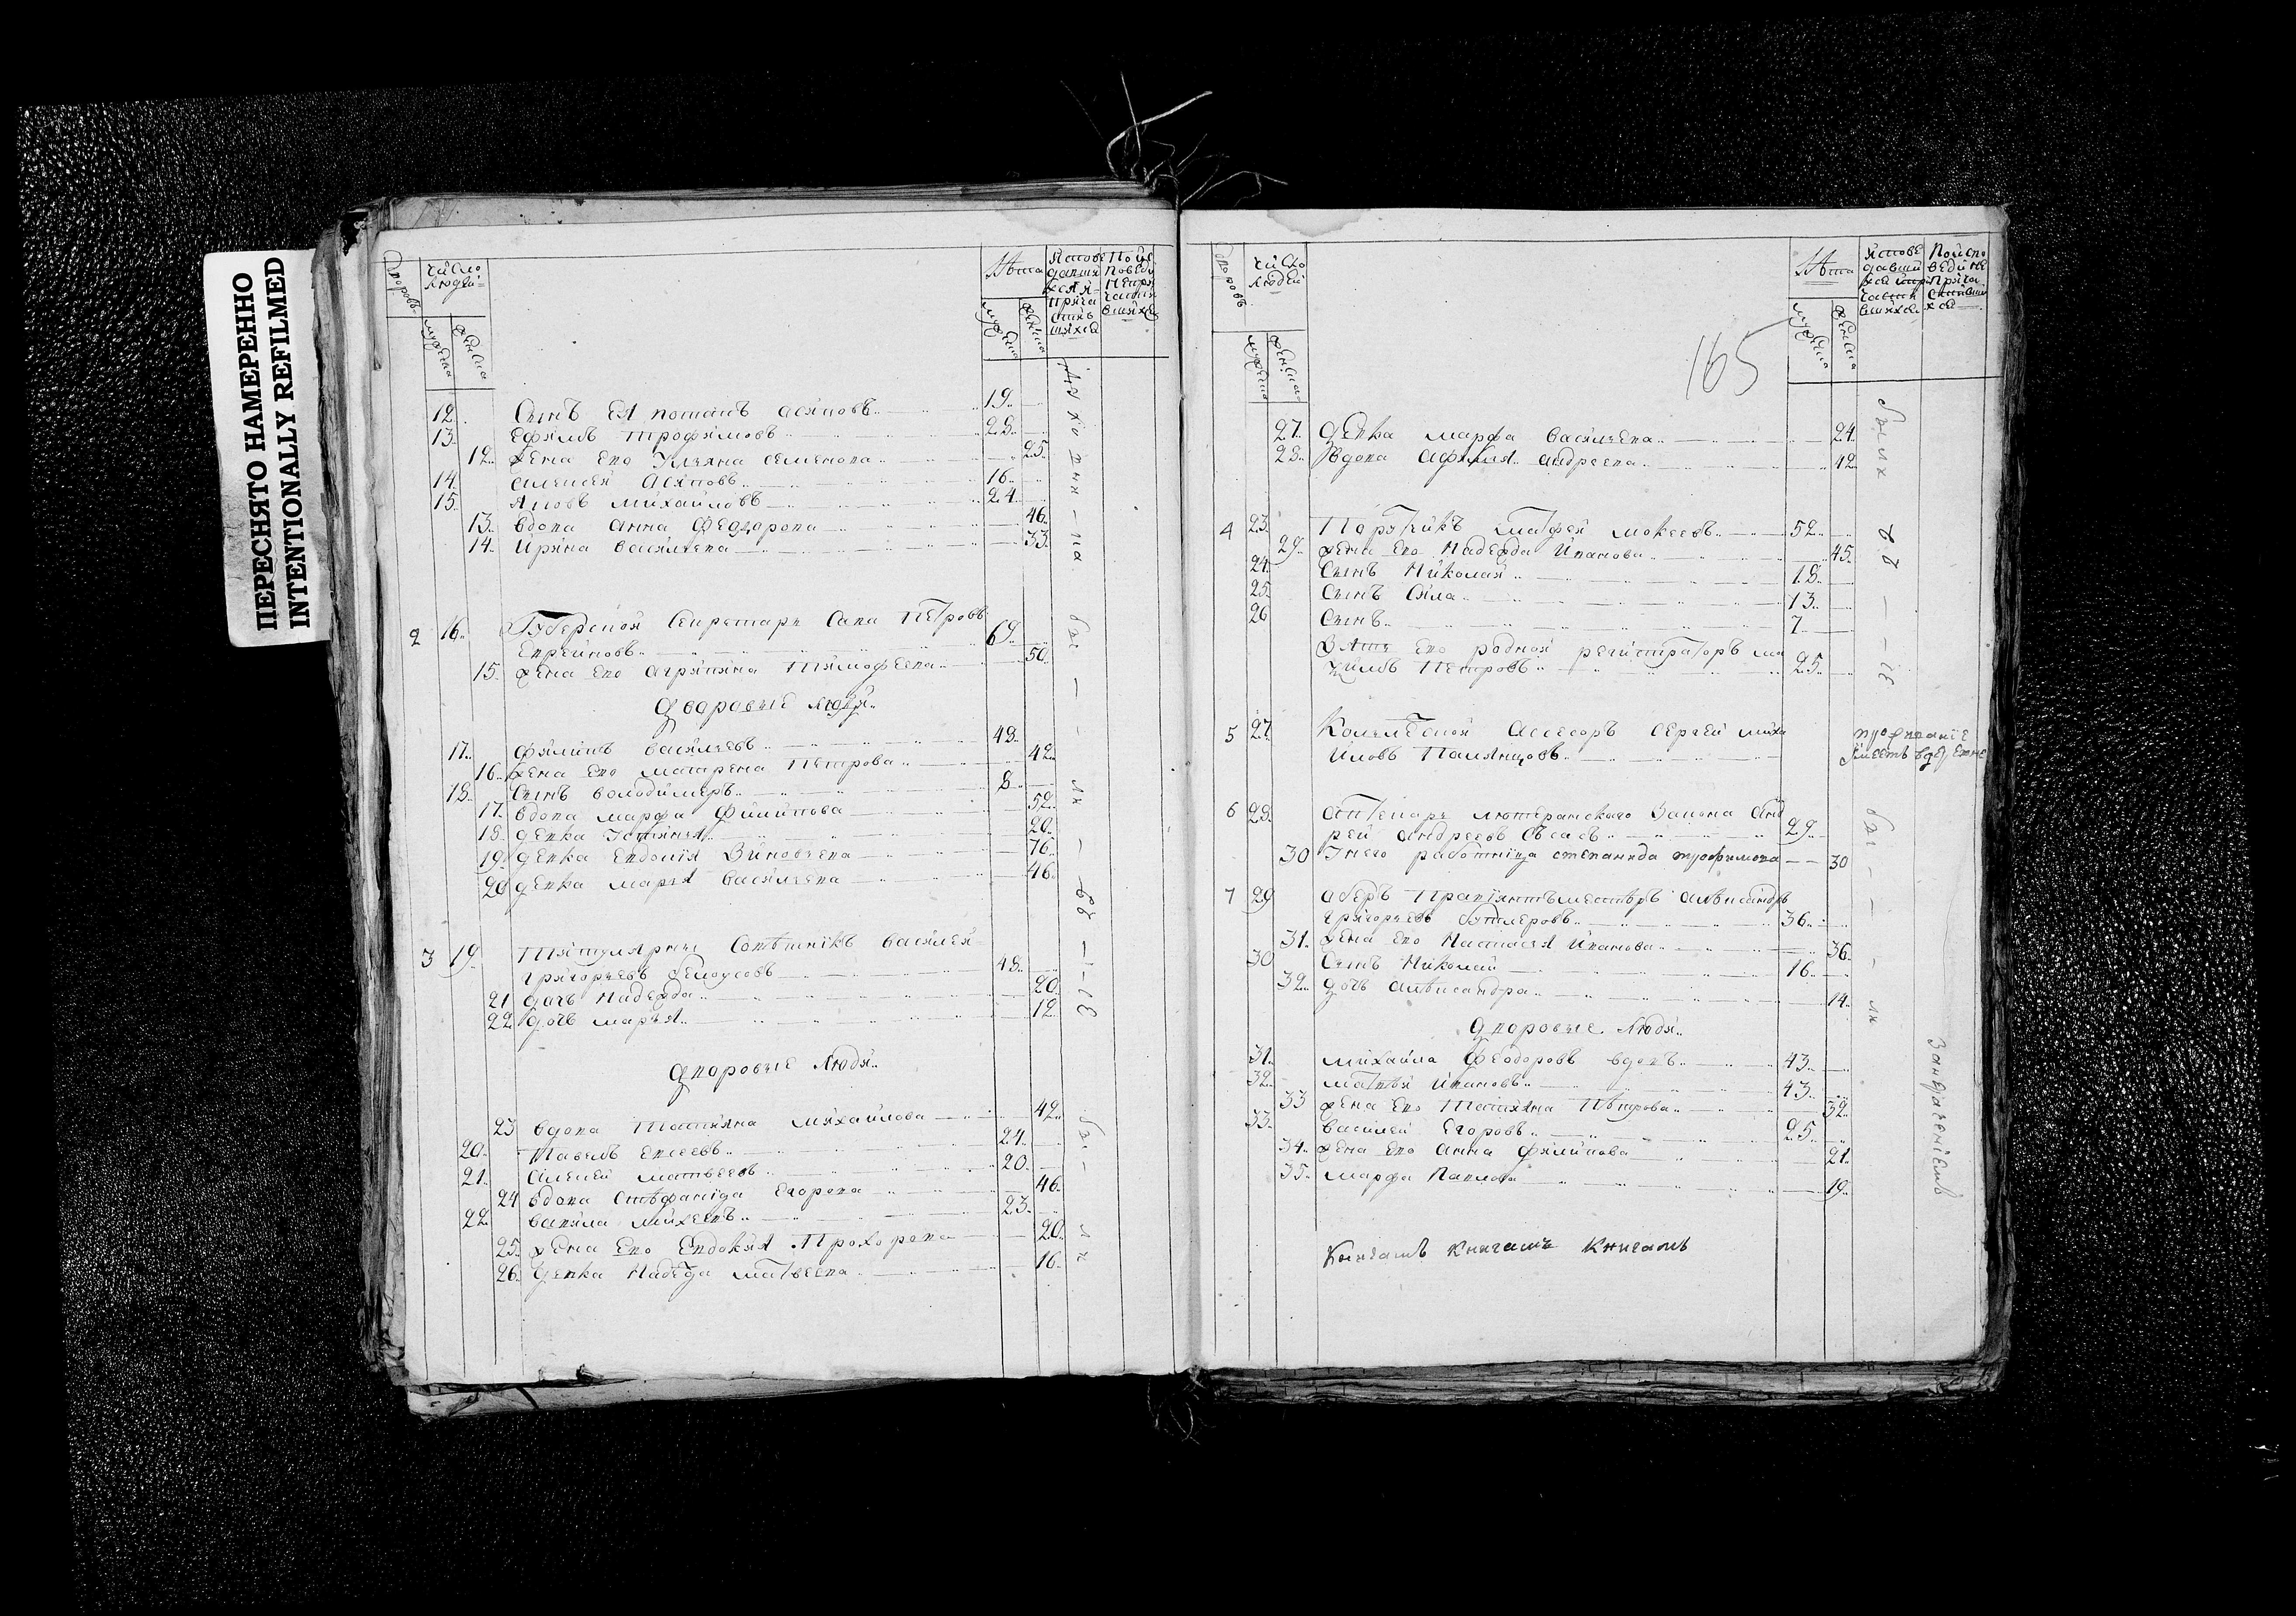 ПЕРЕСНЯТО НАМЕРЕННО
INTENTIONALLY REFILMED
число людей
Лѣта
мужеска
женска
12. Сынъ ея потапъ асиповъ 19
13. ефимъ трофимовъ 28
12. жена ево Ульяна семенова 25
14. алексеи асиповъ 16
15. яковъ михаиловъ 24
13. вдова анна федорова 46
14. Ирина васильева 33
2 16. Губернской Секретарь Сава Петровъ
69
15. жена ево агрипина тимофеева 50
дворовыe люди
17. филипъ васильевъ 48
16. жена ево матрена петрова 42
18. Сынъ володимеръ 8
17. вдова марфа филипова 52
18. девка Устинья 20
19. девка евдокия Зиновьева 76
20 девка марья васильева 46
3 19. Титулярныи Советникъ василеи
григорьевъ белоусовъ 48
21. дочь надежда 20
22. дочь марья 12
дворовые люди
23 вдова татияна михаилова 42
20. павелъ елисеевъ 24
21. алексеи матвеевъ 20
24 вдова стефанида егорова 46
22. вавила михеевъ 23
25. жена ево евдокия прохорова 20
26. девка надежда матвеева 16
165
число людей
Лѣта
мужеска
женска
27. девка марфа васильева 24
28. вдова афимия андреева 42
4 23. Порутчикъ матфеи мокеевъ 52
29. жена ево надежда иванова 45
24. Сынъ николаи 18
25. Сынъ Сила 13
26 Сынъ 7
зять ево родной регистраторъ
петровъ 25
5 27. Колежской асесоръ сергеи миха
иловъ
6 28. лютеранскаго закона анд
реи андреевъ 29
30 у него работница степанида трофимова 30
7 29 оберъ правиянтъмеистеръ александръ
григорьевъ бутлеровъ 36
31. жена ево настасья иванова 36
30 Сынъ николаи 16
32. дочь александра 14
дворовые люди
31. михаила феодоровъ вдовъ 43
32. матвеи ивановъ 43
33 жена ево татияна петрова 32
33. василеи егоровъ 25
34. жена ево анна филипова 21
35. марфа павлова 19
книгамъ книгамъ